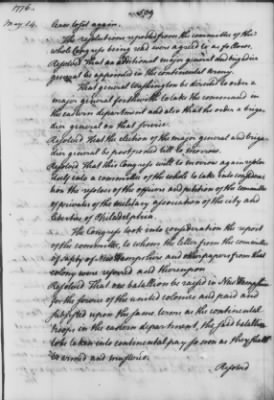 1776.
509
May 14.
leave to sit again.
The resolutions reported from the committee of the
whole Congress being read were agreed to as follows.
Resolved That an additional major general and brigadier
general be appointed in the continental army.
That general Washington be directed to order a
major general forthwith to take the command in
the eastern department and also that he order a briga
dier general on that service.
Resolved That the election of the major general and briga
dier general be postponed till to morrow.
Resolved That this Congress will to morrow again resolve
itself into a committee of the whole to take into considera
tion the of the officers and petition of the committee
of privates of the military association of the city and
liberties of Philadelphia.
The Congress took into consideration the report
of the committee, to whom the letter from the committee
of safety of New Hampshire and other papers from that
colony were referred and thereupon
Resolved That one batallion be raised in New Hampshire
for the service of the united colonies and paid and
subsisted upon the same terms as the continental
troops in the eastern department, the said batallion
to be taken into continental pay so soon as they shall
be armed and mustered.
Resolved